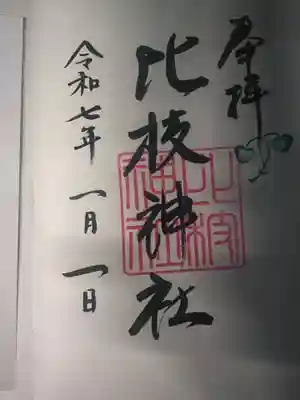 奉拝
比枝神社
令和七年 一月 一日
比枝神社